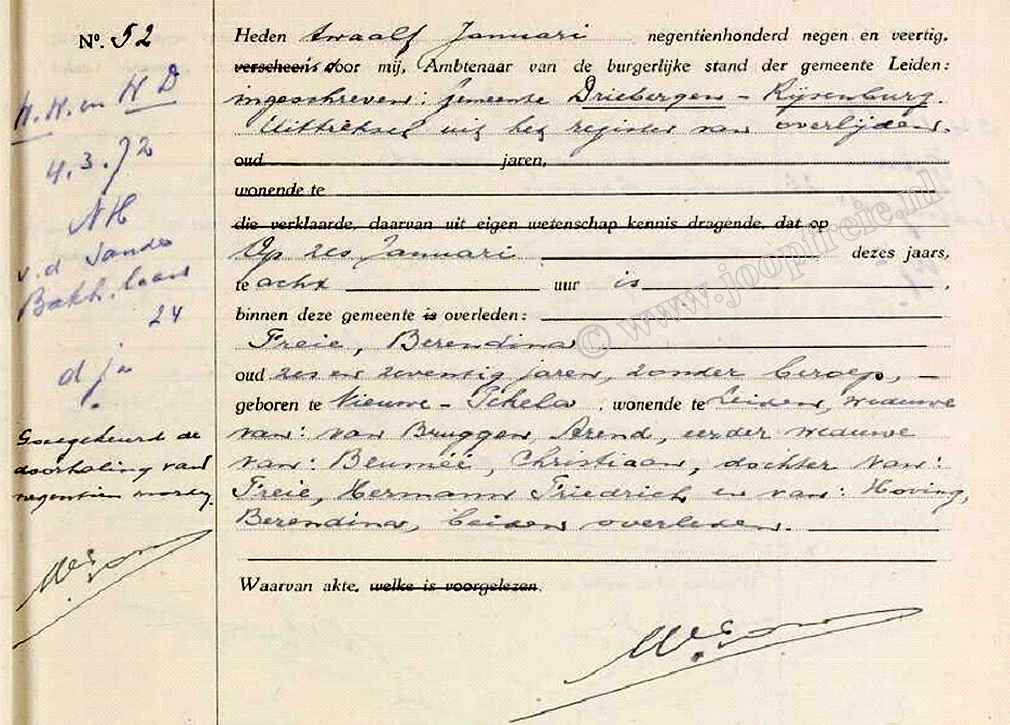 Nº. 52
Heden twaalf Januari negentienhonderd negen en veertig,
verscheen is door mij, Ambtenaar van de burgerlijke stand der gemeente Leiden:
ingeschreven: gemeente Driebergen - Rijsenburg.
Uittreksel uit het register van overlijden.
oud jaren,
wonende te
die verklaarde, daarvan uit eigen wetenschap kennis dragende, dat op
Op zes Januari dezes jaars,
te acht uur is ,
binnen deze gemeente is overleden:
Freie, Berendina
oud zes en zeventig jaren, zonder beroep,
geboren te Nieuwe - Pekela , wonende te Leiden, weduwe
van: van Bruggen, Arend, eerder weduwe
van: Beumëë, Christiaan, dochter van:
Freie, Hermann Friedrich en van: Hoving,
Berendina, beiden overleden.
Waarvan akte, welke is voorgelezen.
H. H. en H D
4.3.72
NH
v.d Sande
Bakh. laan
24
d ja
Goedgekeurd de
doorhaling van
negentien woorden.
© www.joopfreie.nl